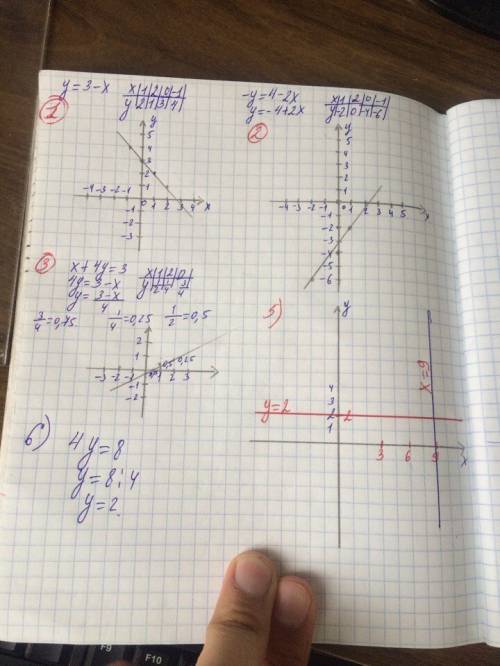 y=3-x
x|1|2|0|-1
y|2|1|3|4
1
y
5
4
3
2
1
-4 -3 -2 -1 0 1 2 3 4 x
-1
-2
-3
-y=4-2x
y=-4+2x
x|1|2|0|-1
y|-2|0|-4|-6
2
y
5
4
3
2
1
-4 -3 -2 -1 0 1 2 3 4 5 x
-1
-2
-3
-4
-5
-6
3
x+4y=3
4y=3-x
y=3-x/4
x|1|2|0
y|1/2|1/4|3/4
3/4=0,75 1/4=0,25 1/2=0,5
y
2
1
0,5 0,25
-3 -2 -1 1 2 3
-1
-2
5)
y
4
3
2 2
1
y=2
x=9
3 6 9 x
6)
4y=8
y=8:4
y=2.
F9
F10